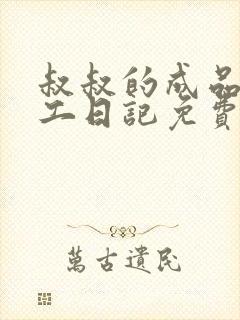 叔叔的成品
工日記免費
萬古遺民